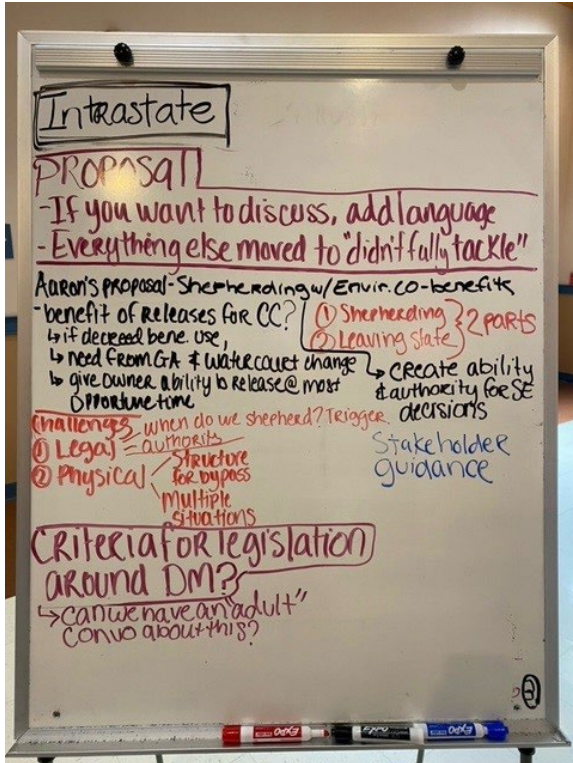 Intrastate
Proposal
-If you want to discuss, add language
-Everything else moved to "didn't fully tackle"
Aaron's proposal-Shepherding w/Envir. co-benefits
-benefit of Releases for CC?
↳if decreed bene. use,
↳need from GA & watercourt change
↳give owner ability to release@most
opportune time
① Shepherding
② Leaving State
2 parts
↳create ability
& authority for SE
decisions
Stakeholder
guidance
Challenges
When do we shepherd? Trigger.
① Legal = authority
② Physical
Structure
for bypass
Multiple
situations
Criteria for legislation
around DM?
↳can we have an "adult"
convo about this?
EXPO
EXPO
EXPO